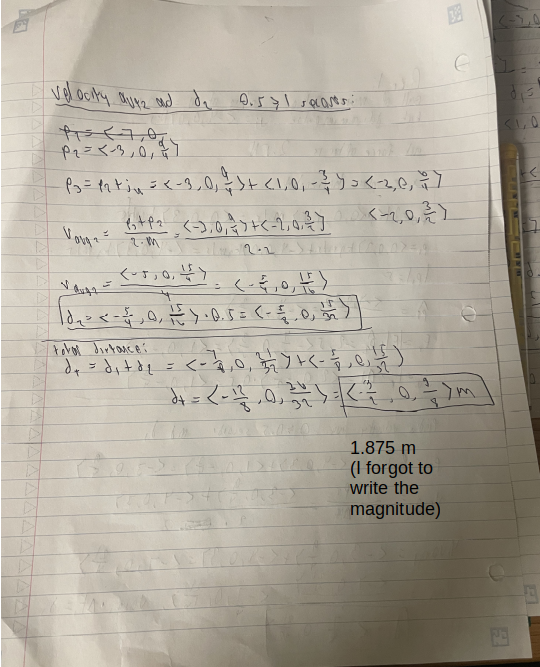 velocity avg2 and d₂ 0.5→1 seconds:
p₁ = <-7, 0,
p₂ = <-3, 0, 9/4>
p₃ = p₂ + j = <-3, 0, 9/4> + <1, 0, -3/4> = <-2, 0, 6/4>
<-2, 0, 3/2>
Vavg2 = p₃+p₂ / 2·m = <-3, 0, 9/4> + <-2, 0, 3/2> / 2·2
Vavg2 = <-5, 0, 15/4> / 4 = <-5/4, 0, 15/16>
d₂ = <-5/4, 0, 15/16> · 0.5 = <-5/8, 0, 15/32>
total distance:
d₊ = d₁ + d₂ = <-7/8, 0, 21/32> + <-5/8, 0, 15/32>
d₊ = <-12/8, 0, 36/32> = <-3/2, 0, 9/8> m
1.875 m
(I forgot to
write the
magnitude)